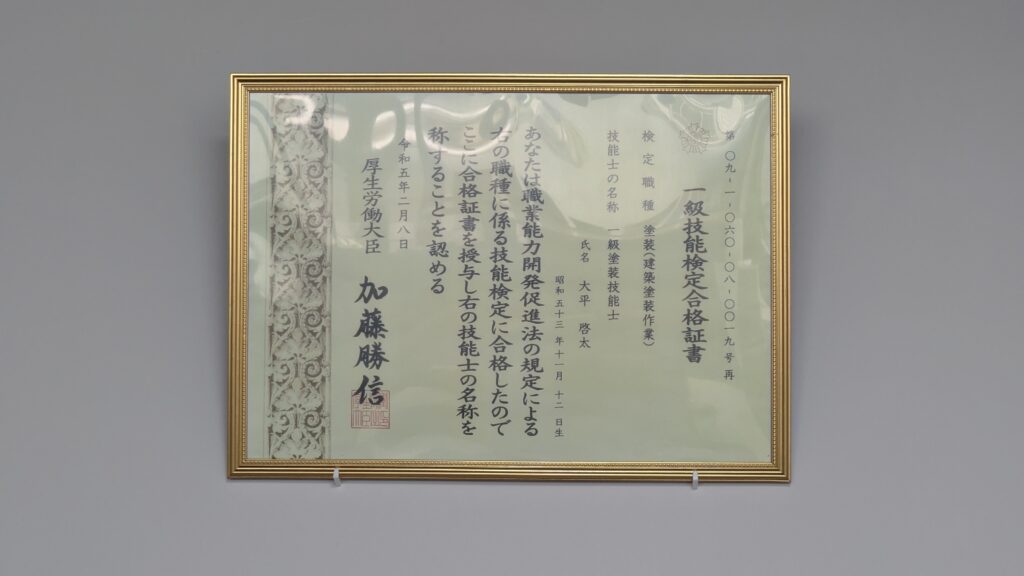 第〇九-一-〇六〇-〇八-〇〇一九号再
一級技能検定合格証書
検定職種 塗装(建築塗装作業)
技能士の名称 一級塗装技能士
氏名 大平 啓太
昭和五十三年十一月十二日生
あなたは職業能力開発促進法の規定による
右の職種に係る技能検定に合格したので
ここに合格証書を授与し右の技能士の名称を
称することを認める
令和五年二月八日
厚生労働大臣 加藤勝信